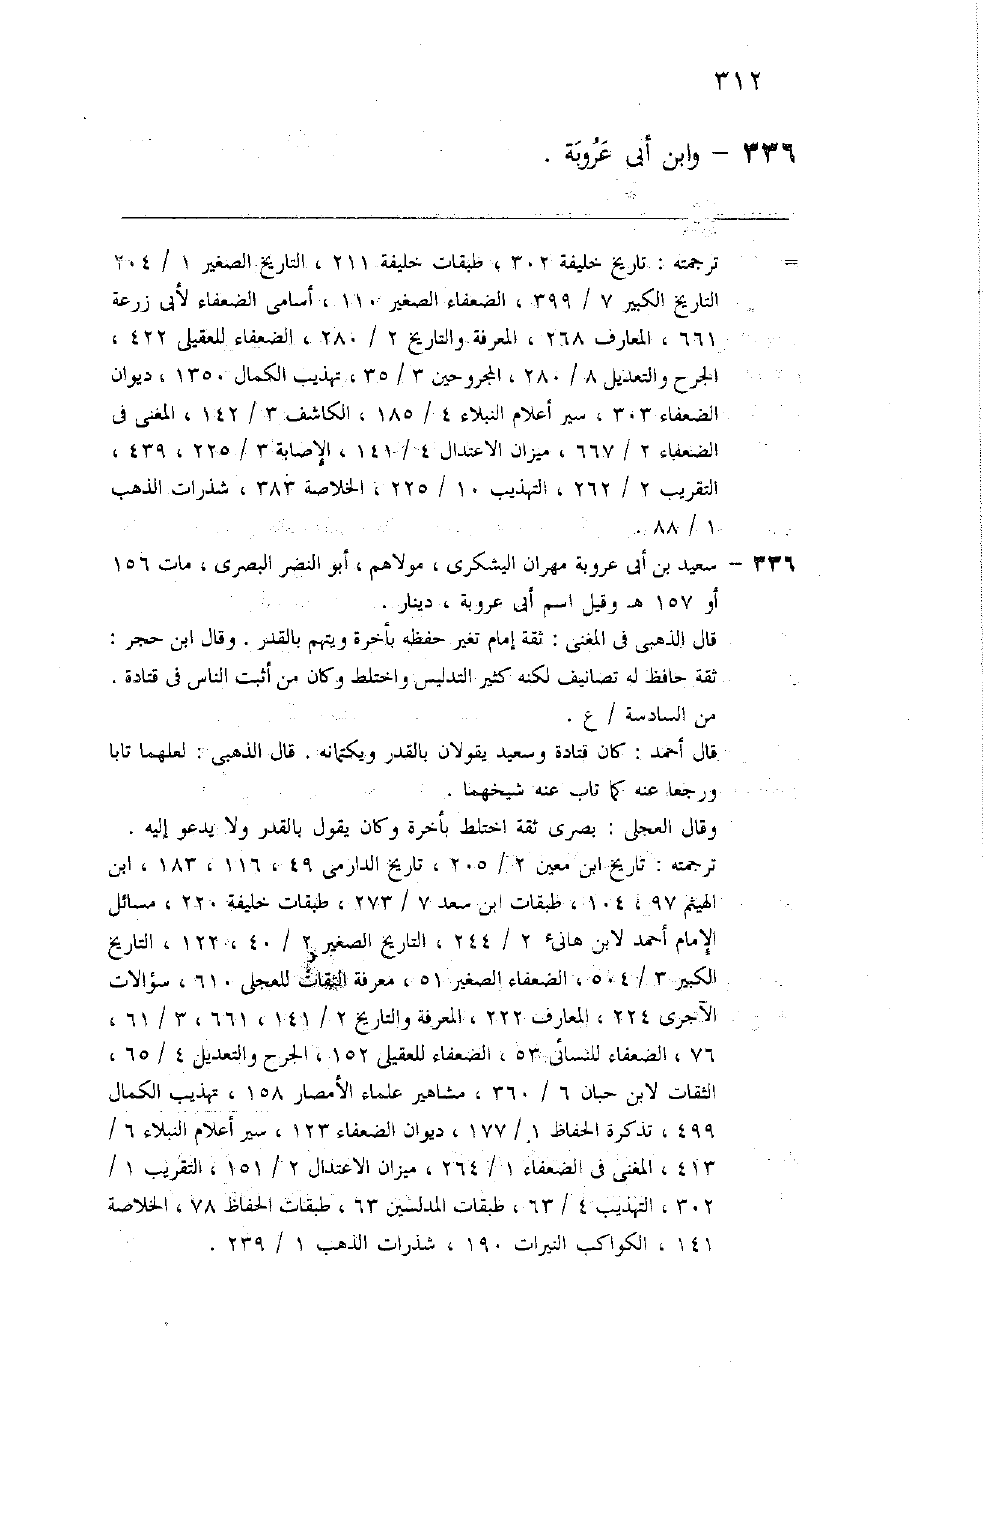 ٣١٢
٣٣٦ – وابن أبى عَرُوبَة .
= ترجمته : تاريخ خليفة ٣٠٢ ، طبقات خليفة ٢١١ ، التاريخ الصغير ١ / ٢٠٤
التاريخ الكبير ٧ / ٣٩٩ ، الضعفاء الصغير ١١٠ ، أسامى الضعفاء لأبى زرعة
٦٦١ ، المعارف ٢٦٨ ، المعرفة والتاريخ ٢ / ٢٨٠ ، الضعفاء للعقيلى ٤٢٢ ،
الجرح والتعديل ٨ / ٢٨٠ ، المجروحين ٣ / ٣٥ ، تهذيب الكمال ١٣٥٠ ، ديوان
الضعفاء ٣٠٣ ، سير أعلام النبلاء ٤ / ١٨٥ ، الكاشف ٣ / ١٤٢ ، المغنى فى
الضعفاء ٢ / ٦٦٧ ، ميزان الاعتدال ٤ / ١٤١ ، الإصابة ٣ / ٢٢٥ ، ٤٣٩ ،
التقريب ٢ / ٢٦٢ ، التهذيب ١٠ / ٢٢٥ ، الخلاصة ٣٨٣ ، شذرات الذهب
١ / ٨٨ .
٣٣٦ – سعيد بن أبى عروبة مهران اليشكرى ، مولاهم ، أبو النضر البصرى ، مات ١٥٦
أو ١٥٧ هـ وقيل اسم أبى عروبة ، دينار .
قال الذهبى فى المغنى : ثقة إمام تغير حفظه بأخرة ويتهم بالقدر . وقال ابن حجر :
ثقة حافظ له تصانيف لكنه كثير التدليس واختلط وكان من أثبت الناس فى قتادة .
من السادسة / ع .
قال أحمد : كان قتادة وسعيد يقولان بالقدر ويكتمانه . قال الذهبى : لعلهما تابا
ورجعا عنه كما تاب عنه شيخهما .
وقال العجلى : بصرى ثقة اختلط بأخرة وكان يقول بالقدر ولا يدعو إليه .
ترجمته : تاريخ ابن معين ٢ / ٢٠٥ ، تاريخ الدارمى ٤٩ ، ١١٦ ، ١٨٣ ، ابن
الهيثم ٩٧ ، ١٠٤ ، طبقات ابن سعد ٧ / ٢٧٣ ، طبقات خليفة ٢٢٠ ، مسائل
الإمام أحمد لابن هانىء ٢ / ٢٤٤ ، التاريخ الصغير ٢ / ٤٠ ، ١٢٢ ، التاريخ
الكبير ٣ / ٥٠٤ ، الضعفاء الصغير ٥١ ، معرفة الثقات للعجلى ٦١٠ ، سؤالات
الآجرى ٢٢٤ ، المعارف ٢٢٢ ، المعرفة والتاريخ ٢ / ١٤١ ، ٦٦١ ، ٣ / ٦١ ،
٧٦ ، الضعفاء للنسائى ٥٣ ، الضعفاء للعقيلى ١٥٢ ، الجرح والتعديل ٤ / ٦٥ ،
الثقات لابن حبان ٦ / ٣٦٠ ، مشاهير علماء الأمصار ١٥٨ ، تهذيب الكمال
٤٩٩ ، تذكرة الحفاظ ١ / ١٧٧ ، ديوان الضعفاء ١٢٣ ، سير أعلام النبلاء ٦ /
٤١٣ ، المغنى فى الضعفاء ١ / ٢٦٤ ، ميزان الاعتدال ٢ / ١٥١ ، التقريب ١ /
٣٠٢ ، التهذيب ٤ / ٦٣ ، طبقات المدلسين ٦٣ ، طبقات الحفاظ ٧٨ ، الخلاصة
١٤١ ، الكواكب النيرات ١٩٠ ، شذرات الذهب ١ / ٢٣٩ .